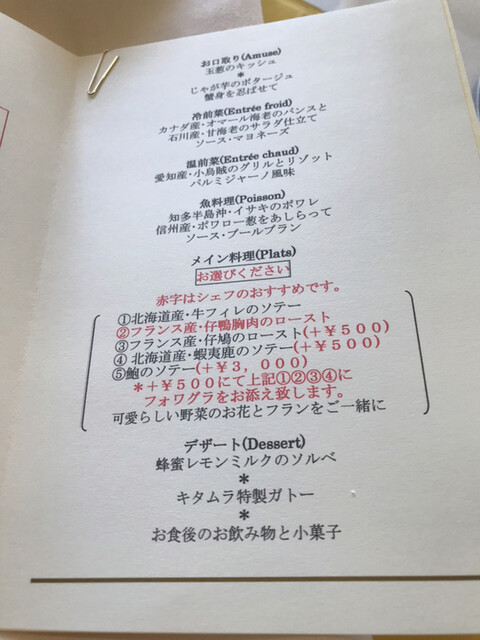 お口取り(Amuse)
玉葱のキッシュ
*
じゃが芋のポタージュ
蟹身を忍ばせて
冷前菜(Entrée froid)
カナダ産・オマール海老のパンスと
石川産・甘海老のサラダ仕立て
ソース・マヨネーズ
温前菜(Entrée chaud)
愛知産・小烏賊のグリルとリゾット
パルミジャーノ風味
魚料理(Poisson)
知多半島沖・イサキのポワレ
信州産・ポワロー葱をあしらって
ソース・ブールブラン
メイン料理(Plats)
お選びください
赤字はシェフのおすすめです。
①北海道産・牛フィレのソテー
②フランス産・仔鴨胸肉のロースト
③フランス産・仔鳩のロースト(+￥５００)
④ 北海道産・蝦夷鹿のソテー(+￥５００)
⑤鮑のソテー(+￥３，０００)
*+￥５００にて上記①②③④に
フォワグラをお添え致します。
可愛らしい野菜のお花とフランをご一緒に
デザート(Dessert)
蜂蜜レモンミルクのソルベ
*
キタムラ特製ガトー
*
お食後のお飲み物と小菓子